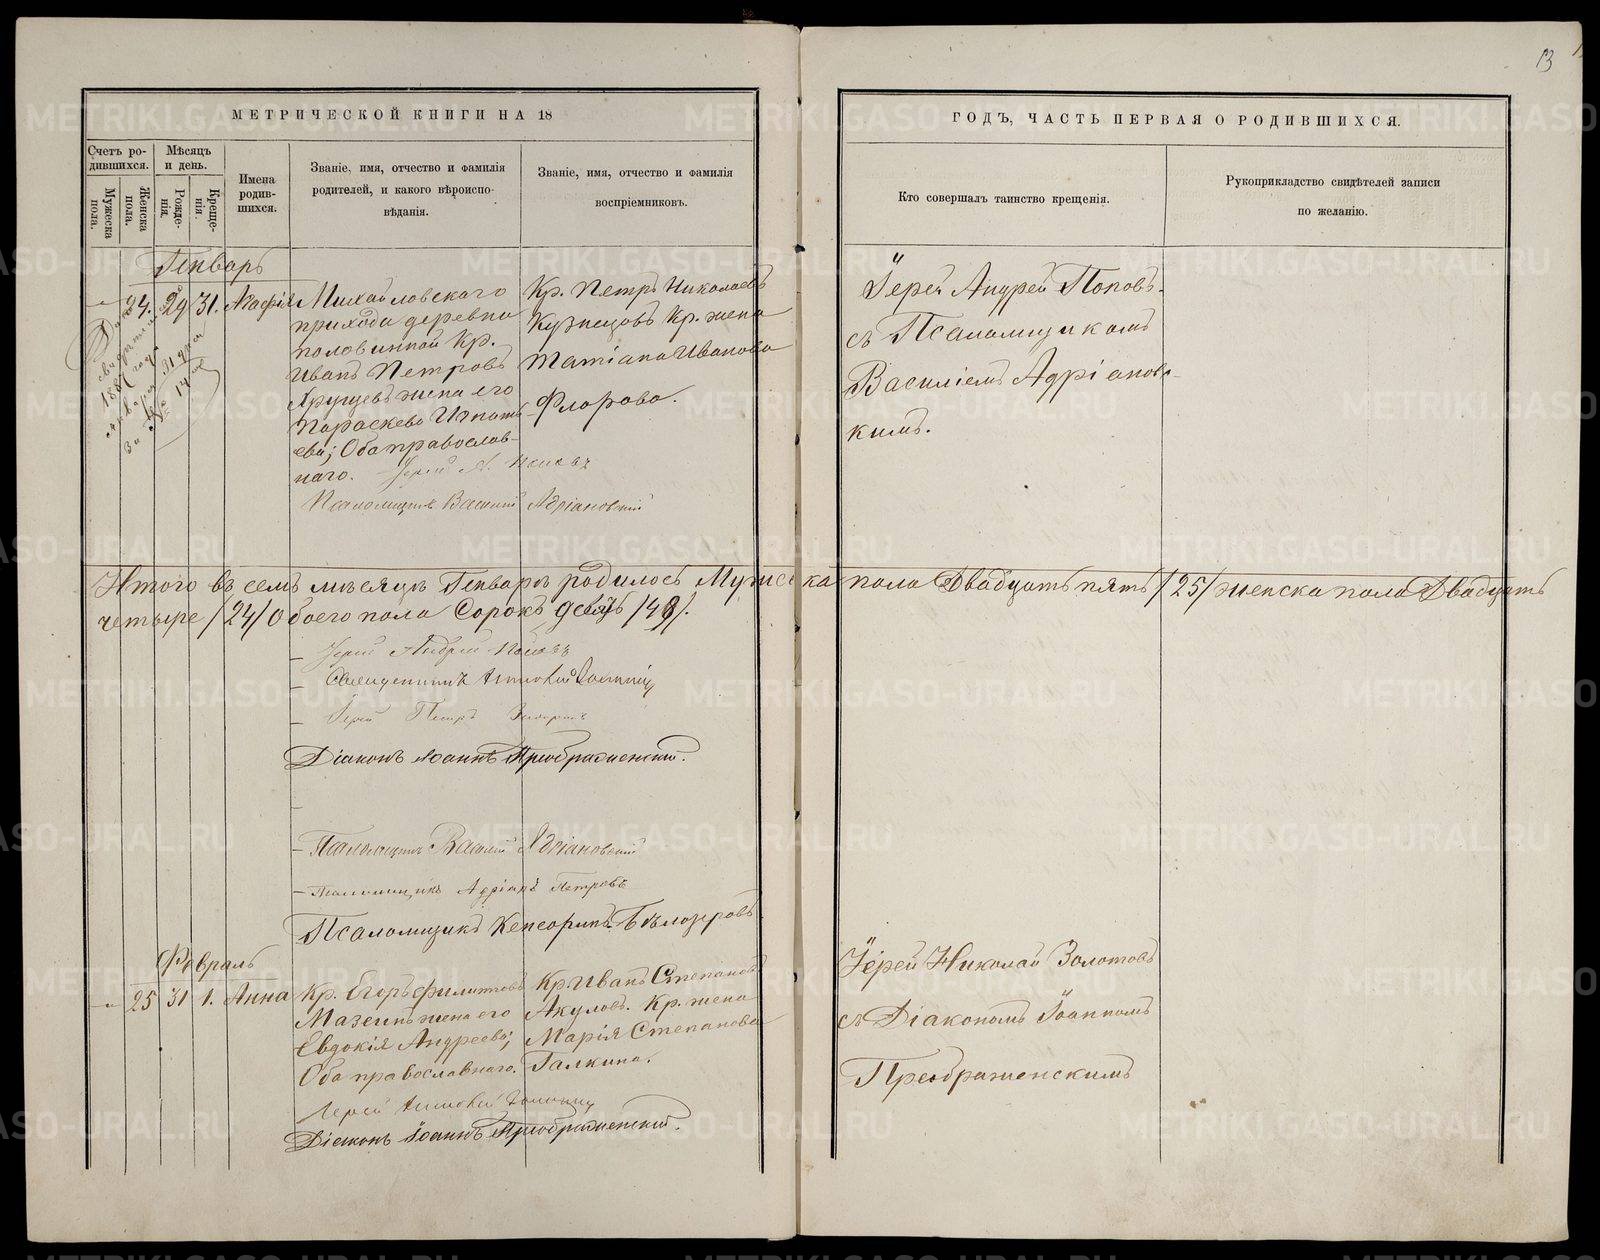 13
МЕТРИЧЕСКОЙ КНИГИ НА 18
ГОДЪ, ЧАСТЬ ПЕРВАЯ О РОДИВШИХСЯ.
Счетъ ро-
дившихся.
Мужеска
пола.
Женска
пола.
Мѣсяцъ
и день.
Рожде-
нія.
Креще-
нія.
Имена
родив-
шихся.
Званіе, имя, отчество и фамилія
родителей, и какого вѣроиспо-
вѣданія.
Званіе, имя, отчество и фамилія
воспріемниковъ.
Кто совершалъ таинство крещенія.
Рукоприкладство свидѣтелей записи
по желанію.
Генварь
24. 29 31. Агафія
1887 года
января 31 дня
за №
Михайловскаго
прихода деревни
половинной Кр.
Иванъ Петровъ
Хрущевъ жена его
Параскева Игнать
ева; Оба православ-
наго. Іерей А. Поповъ
Псаломщикъ Василій Адріановскій
Кр. Петръ Николаевъ
Кузнецовъ Кр. жена
Татіана Иванова
Флорова.
Іерей Андрей Поповъ.
съ Псаломщикомъ
Василіемъ Адріановс-
кимъ.
Итого въ семъ мѣсяцѣ Генварѣ родилось Мужеска пола Двадцать пять /25/ женска пола Двадцать
четыре /24/ Обоего пола Сорокъ девять /49/.
Іерей Андрей Поповъ
Священникъ
Іерей Петръ
Діаконъ Іоаннъ Преображенскій.
Псаломщикъ Василій Адріановскій
Псаломщикъ Адріанъ Петровъ
Псаломщикъ Кенсоринъ Бѣлозеровъ
Февраль
25 31 1. Анна
Кр. Егоръ Филиповъ
Мазеинъ жена его
Евдокія Андреева;
Оба православнаго.
Іерей
Діаконъ Іоаннъ Преображенскій.
Кр Иванъ Степановъ
Акуловъ. Кр. жена
Марія Степанова
Галкина.
Іерей Николай Золотовъ
съ Діакономъ Іоанномъ
Преображенскимъ
METRIKI.GASO-URAL.RU